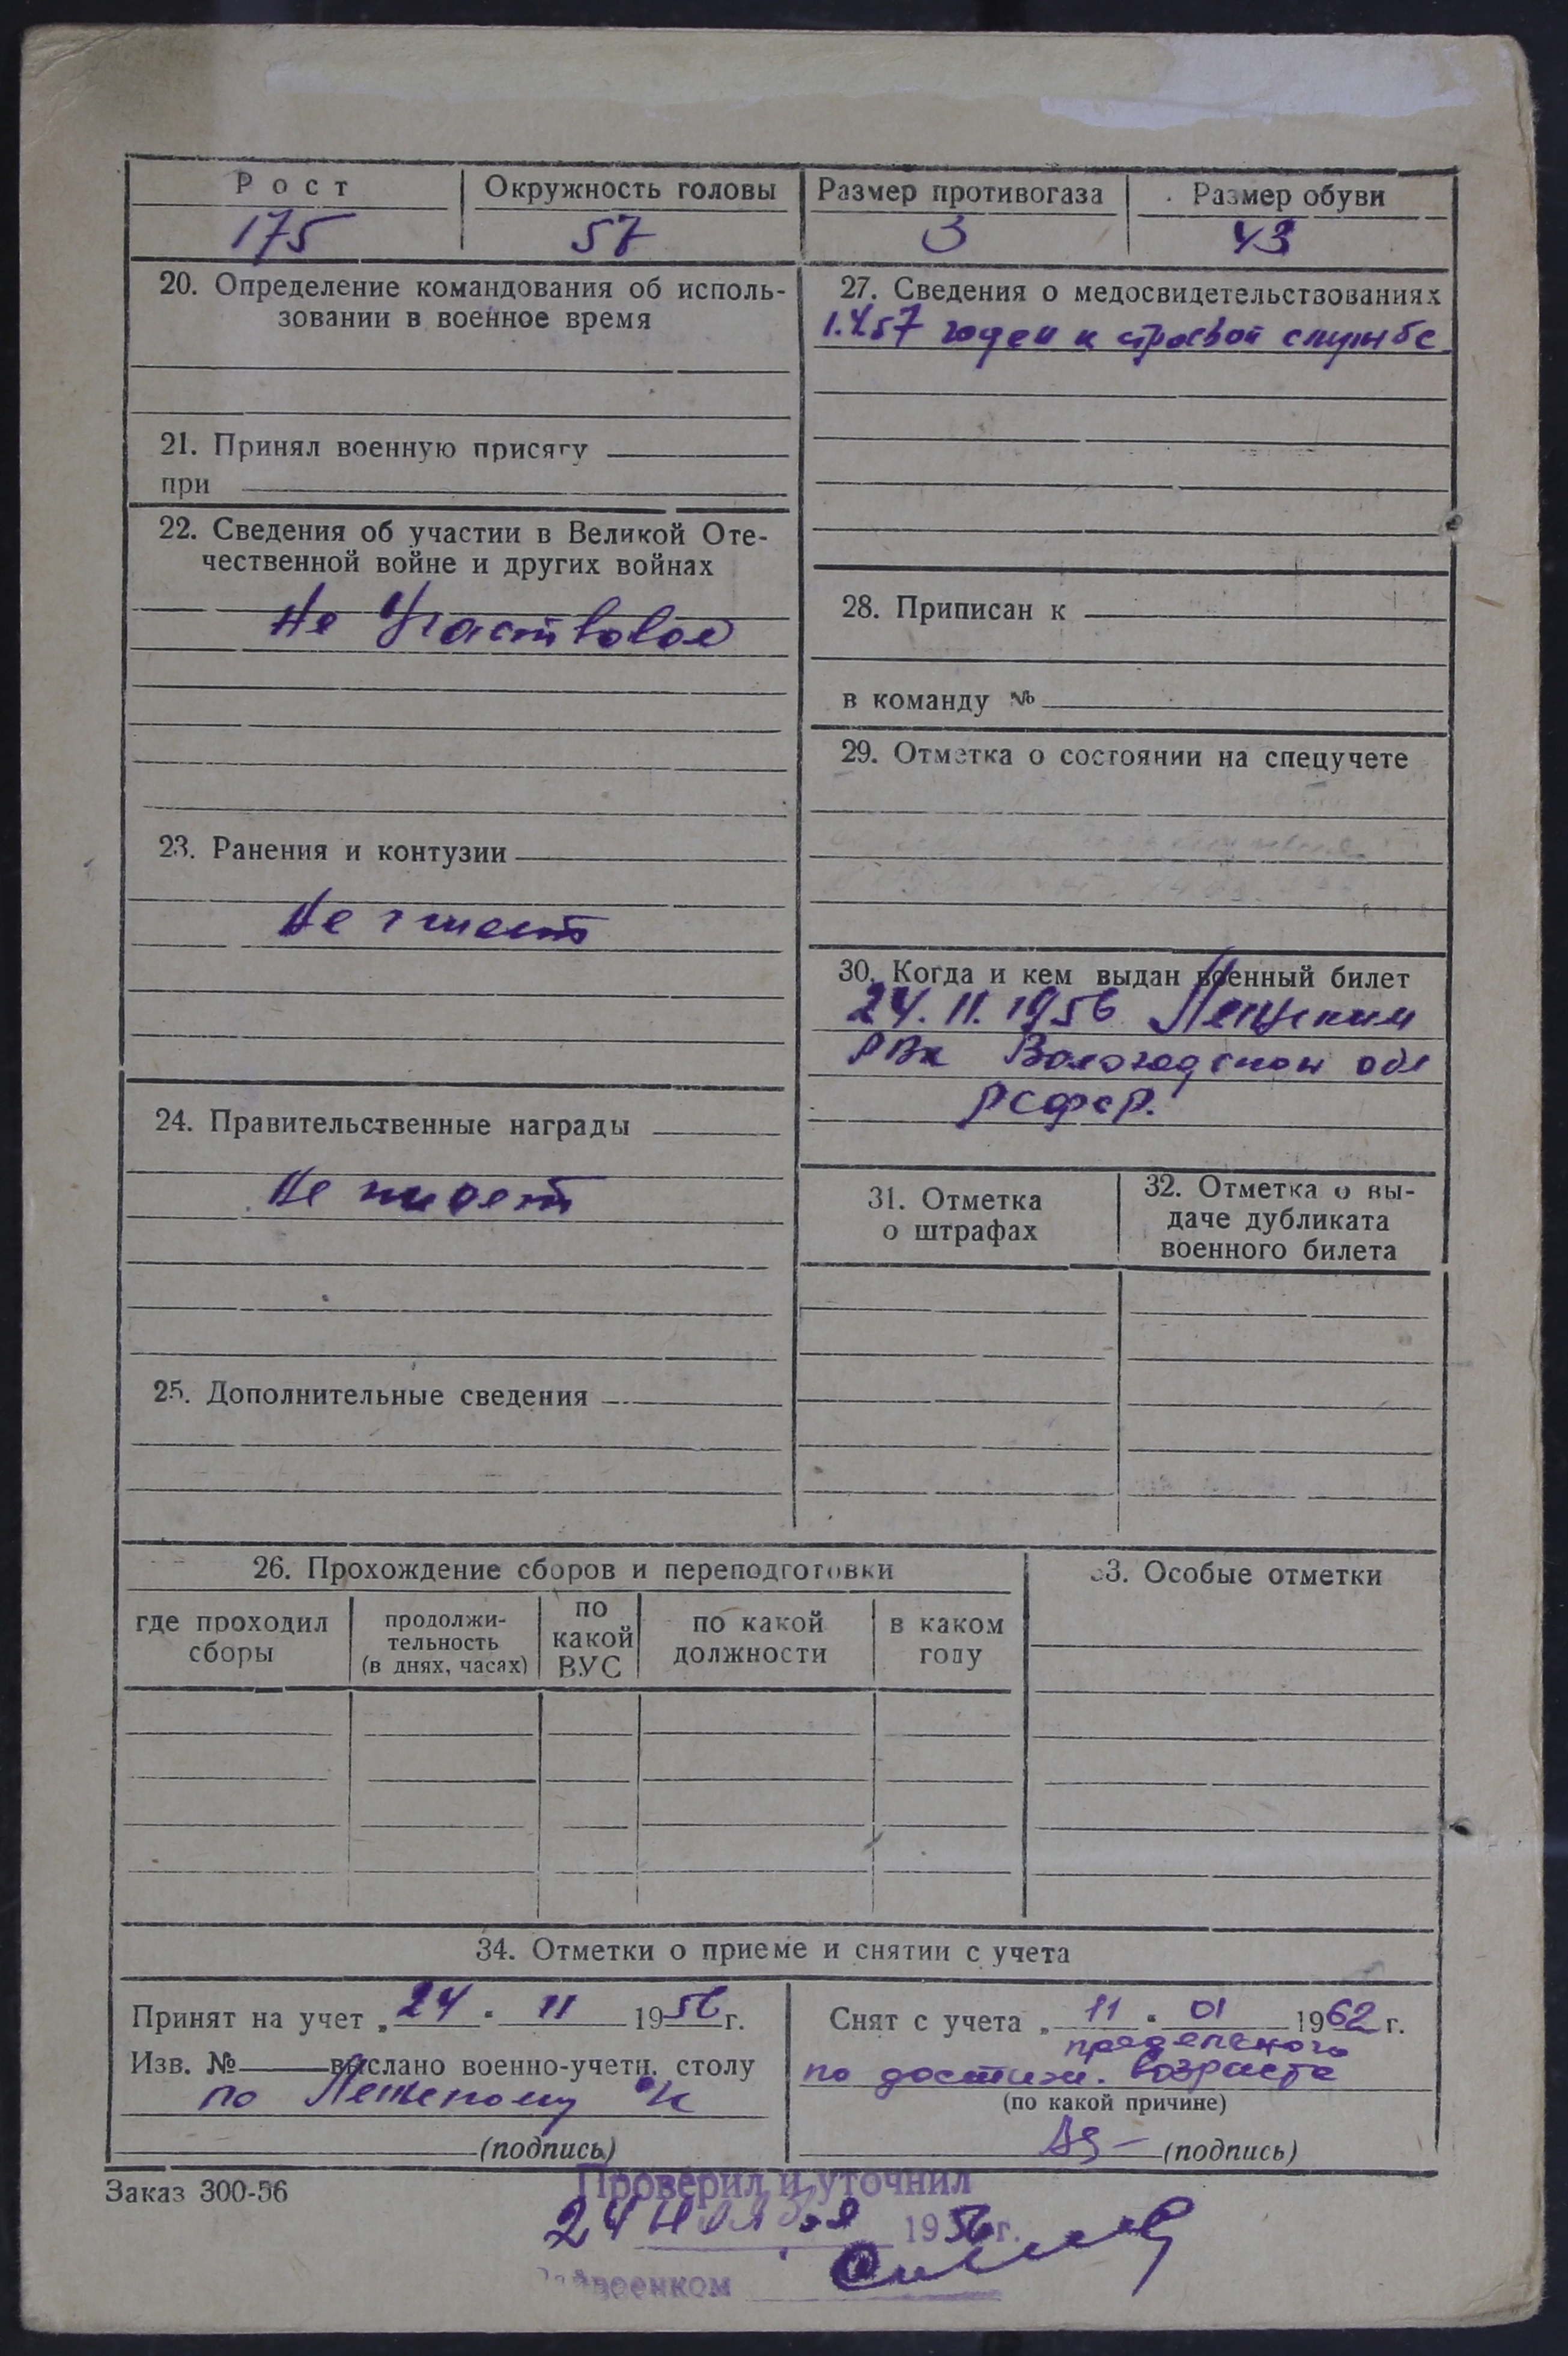 Рост
Окружность головы
Размер противогаза
Размер обуви
175
57
3
43
20. Определение командования об исполь-
зовании в военное время
21. Принял военную присягу
при
22. Сведения об участии в Великой Оте-
чественной войне и других войнах
Не Участвовал
23. Ранения и контузии
Не имеет
24. Правительственные награды
Не имеет
25. Дополнительные сведения
27. Сведения о медосвидетельствованиях
1.4.57 годен к строевой службе
28. Приписан к
в команду №
29. Отметка о состоянии на спецучете
30. Когда и кем выдан военный билет
24.11.1956
РВК Вологодской обл
РСФСР.
31. Отметка
о штрафах
32. Отметка о вы-
даче дубликата
военного билета
26. Прохождение сборов и переподготовки
где проходил
сборы
продолжи-
тельность
(в днях, часах)
по
какой
ВУС
по какой
должности
в каком
году
33. Особые отметки
34. Отметки о приеме и снятии с учета
Принят на учет „ 24 " 11 1956 г.
Изв. № выслано военно-учетн. столу
по
(подпись)
Снят с учета „ 11 " 01 1962 г.
предельного
по достиж. возраста
(по какой причине)
(подпись)
Заказ 300-56
Проверил и уточнил
24 ноября 1956 г.
Райвоенком